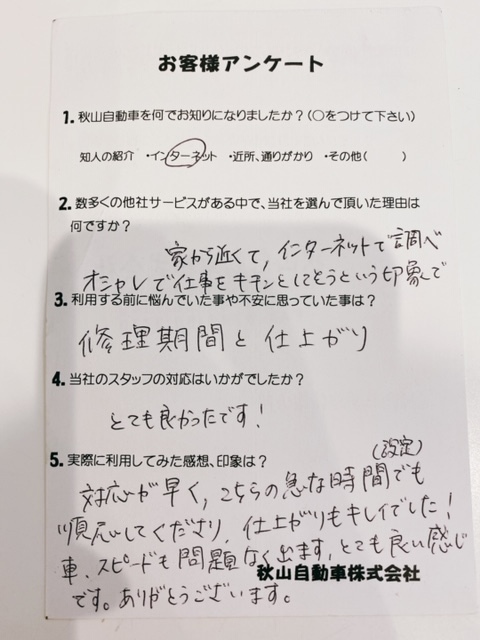 お客様アンケート
1. 秋山自動車を何でお知りになりましたか？（○をつけて下さい）
知人の紹介 ・インターネット ・近所、通りがかり ・その他（ ）
2. 数多くの他社サービスがある中で、当社を選んで頂いた理由は
何ですか？
家から近くて，インターネットで調べ
オシャレで仕事をキチンとしてそうという印象で
3. 利用する前に悩んでいた事や不安に思っていた事は？
修理期間と仕上がり
4. 当社のスタッフの対応はいかがでしたか？
とても良かったです！
5. 実際に利用してみた感想、印象は？
(設定)
対応が早く，こちらの急な時間でも
順応してくださり，仕上がりもキレイでした！
車、スピードも問題なく出ます，とても良い感じ
です。ありがとうございます。
秋山自動車株式会社